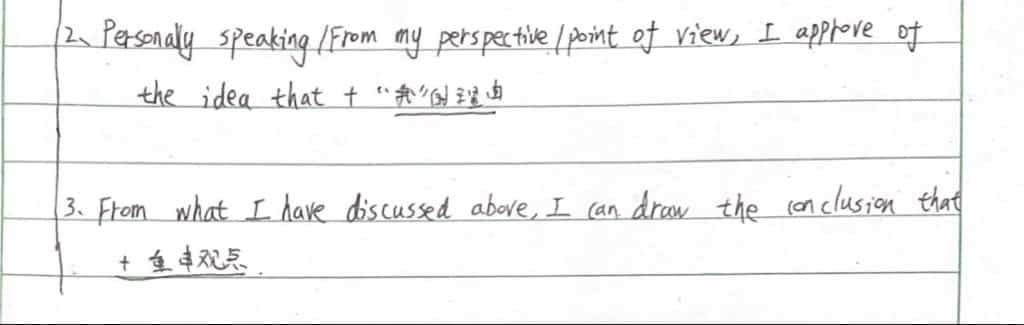 2、Personally speaking/From my perspective/point of view, I approve of
the idea that + “我”的理由
3、From what I have discussed above, I can draw the conclusion that
+ 重申观点.